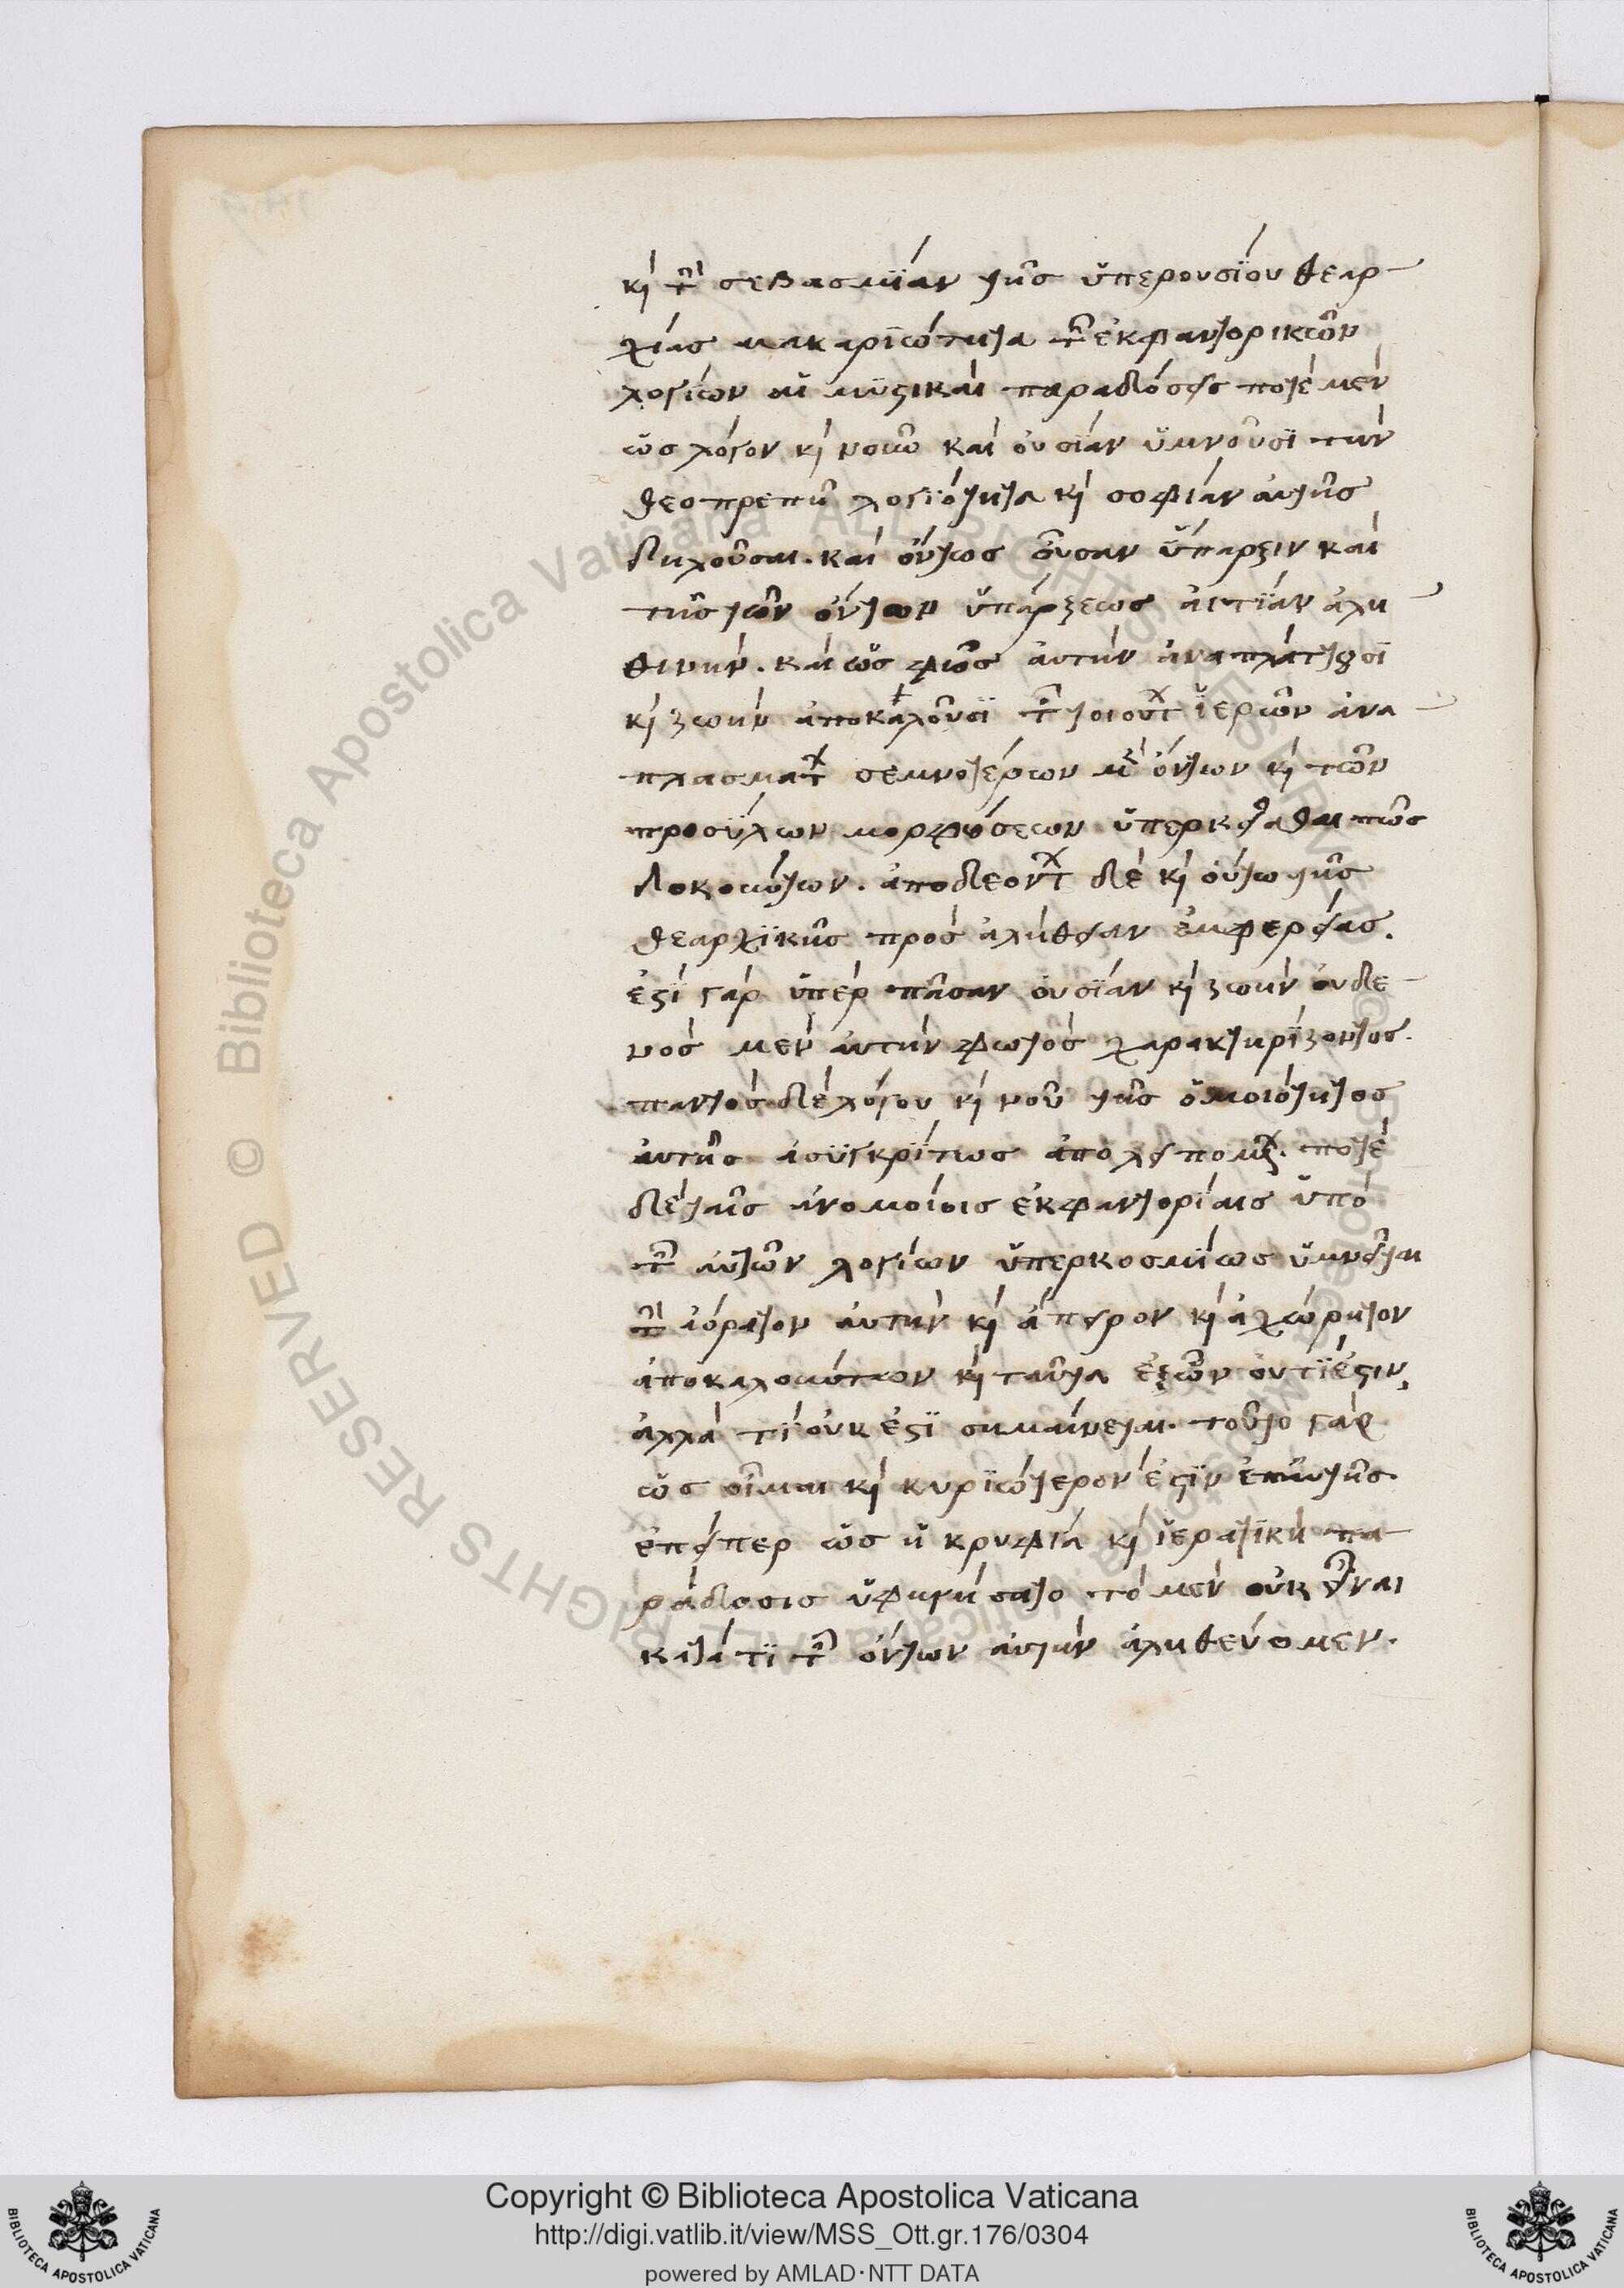 κὶ τὴν σεβασμίαν τῆς ὑπερουσίου θεαρ-
χίας μακαριότητα τῶν ἐκφαντορικῶν
λογίων αἱ μυστικαὶ παραδόσεις ποτὲ μὲν
ὡς λόγον κὶ νοῦν καὶ οὐσίαν ὑμνοῦσι τὴν
θεοπρεπῆ λογιότητα κὶ σοφίαν αὐτῆς
δηλοῦσαι. καὶ ὄντως οὖσαν ὕπαρξιν καὶ
τῆς τῶν ὄντων ὑπάρξεως αἰτίαν ἀλη
θινήν. καὶ ὡς φῶς αὐτὴν ἀναπλάττουσι
κὶ ζωὴν ἀποκαλοῦσι τῶν τοιούτων ἱερῶν ἀνα
πλασμάτων σεμνοτέρων μὲν ὄντων κὶ τῶν
προσύλων μορφώσεων ὑπερκεῖσθαι πῶς
δοκούντων. ἀποδεόντων δὲ κὶ οὕτω τῆς
θεαρχικῆς πρὸς ἀλήθειαν ἐμφερείας.
ἔστι γὰρ ὑπὲρ πᾶσαν οὐσίαν κὶ ζωὴν οὐδε-
νὸς μὲν αὐτὴν φωτὸς χαρακτηρίζοντος.
παντὸς δὲ λόγου κὶ νοῦ τῆς ὁμοιότητος
αὐτῆς ἀσυγκρίτως ἀπολειπομένων. ποτὲ
δὲ ταῖς ἀνομοίοις ἐκφαντορίαις ὑπὸ
τῶν αὐτῶν λογίων ὑπερκοσμίως ὑμνεῖται
τὴν ἀόρατον αὐτὴν κὶ ἄπειρον κὶ ἀχώρητον
ἀποκαλούντων κὶ ταῦτα ἐξ ὧν οὐ τί ἐστιν,
ἀλλὰ τί οὐκ ἔστι σημαίνεται. τοῦτο γὰρ
ὡς οἶμαι κὶ κυριώτερόν ἐστιν ἐπ' αὐτῆς.
ἐπείπερ ὡς ἡ κρυφία κὶ ἱερατικὴ πα-
ράδοσις ὑφηγήσατο τὸ μὲν οὐκ εἶναι
κατά τι τῶν ὄντων αὐτὴν ἀληθεύομεν.
Copyright © Biblioteca Apostolica Vaticana
http://digi.vatlib.it/view/MSS_Ott.gr.176/0304
powered by AMLAD·NTT DATA